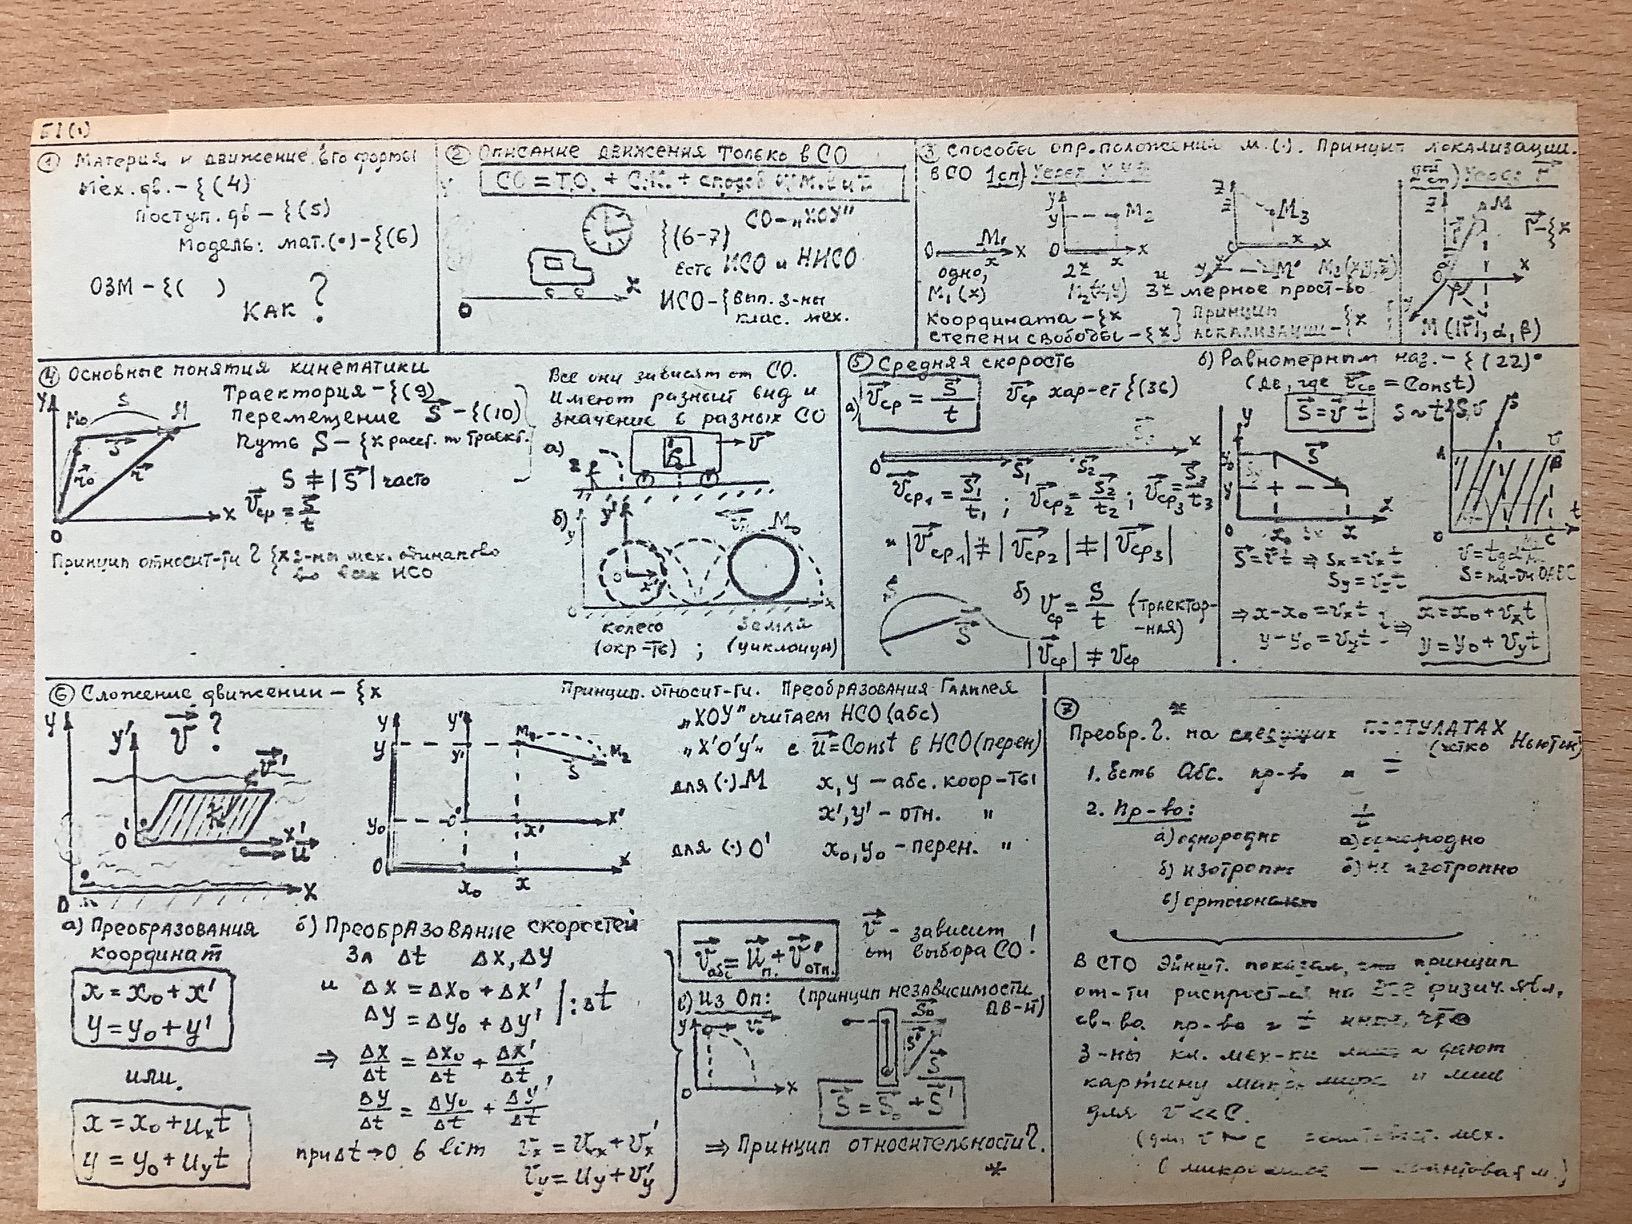 Б1(1)
① Материя и движение. Его формы
Мех. дв. – {(4)
Поступ. дв – {(5)
Модель: мат.(•) – {(6)
ОЗМ – {( )
Как ?
② Описание движения только в СО
СО = Т.О. + С.К. + способ
СО – „ХОУ"
{(6-7)
Есть ИСО и НИСО
ИСО – {вып. з-ны
клас. мех.
O X
③ Способы опр. положений м.(·). Принцип локализации.
В СО 1сп) Через
M₁ O x X
одно,
M₁(x)
y M₂ O x X
2х и 3х мерное прост-во
z M₃ x X
M (|r⃗|, α, β)
Координата – {х
Степени свободы – {х
Принцип
локализации – {х
④ Основные понятия кинематики
Траектория – {(9)
Перемещение S⃗ – {(10)
Путь S – {х расст. по траект.
S ≠ |S⃗| часто
v⃗ср = S⃗/t
Y M₀ S M S⃗ r⃗₀ r⃗ O X
Принцип относит-ти Г {х з-ны мех. одинаково
во всех ИСО
Все они зависят от СО.
Имеют разный вид и
значение в разных СО
а) v⃗
б) y y' x' M₀
колесо Земля
(окр-ть) ; (циклоида)
⑤ Средняя скорость
а) v⃗ср = S⃗/t v⃗ср хар-ет {(36)
O S⃗₁ S⃗₂ X
v⃗ср₁ = S⃗₁/t₁ ; v⃗ср₂ = S⃗₂/t₂ ; v⃗ср₃ = S⃗₃/t₃
и |v⃗ср₁| ≠ |v⃗ср₂| ≠ |v⃗ср₃|
б) vср = S/t (траектор-
-ная)
S S⃗
|v⃗ср| ≠ vср
б) Равномерным наз. – {(22)
(дв, где v⃗ср = Const)
S⃗ = v⃗ t S ~ t
S⃗ = v⃗t ⇒ Sx = vxt
Sy = vyt
S = пл-ди OABC
⇒ x – x₀ = vxt
y – y₀ = vyt
⇒ x = x₀ + vxt
y = y₀ + vyt
⑥ Сложение движений – {х Принцип относит-ти. Преобразования Галилея
V⃗ ?
Y y' v⃗' O' x' u⃗ O X
y y' M₁ M₂ S y₀ O' x' X' O x₀ x X
„ХОУ" считаем НСО (абс)
„Х'О'у'" с u⃗ = Const в НСО (перен)
для (·) M x, y – абс. коор-ты
x', y' – отн. "
для (·) O' x₀, y₀ – перен. "
а) Преобразования
координат
x = x₀ + x'
y = y₀ + y'
или
x = x₀ + uxt
y = y₀ + uyt
б) Преобразование скоростей
За Δt Δx, Δy
и Δx = Δx₀ + Δx'
Δy = Δy₀ + Δy' | : Δt
⇒ Δx/Δt = Δx₀/Δt + Δx'/Δt,
Δy/Δt = Δy₀/Δt + Δy'/Δt
при Δt → 0 в lim vx = ux + v'x
vy = uy + v'y
v⃗абс = u⃗п. + v⃗'отн.
v⃗ – зависит
от выбора СО !
в) Из Оп: (принцип независимости
дв-й)
y v⃗₀ O x
S⃗₀ S⃗' S⃗
S⃗ = S⃗₀ + S⃗'
⇒ Принцип относительности Г.
*
⑦ *
Преобр. Г. на следующих ПОСТУЛАТАХ
(чётко Ньютон)
1. Есть Абс. пр-во и t
2. Пр-во: t
а) однородно а) однородно
б) изотропно б) не изотропно
в) ортогонально
В СТО Эйншт. показал, что принцип
от-ти распрост-ся на все физич. явл.
св-ва пр-во и t
З-ны кл. мех-ки дают
картину
для v << C.
(для v ~ c мех.
( – квантовая м.)